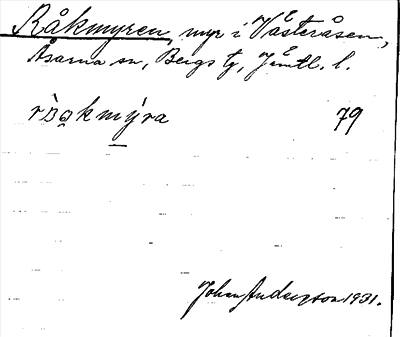 Råkmyren, myr i Västeråsen,
Åsarna sn, Bergs tg, Jämtl. l.
rɔ̀ək mýra 79
Johan Anderszon 1931.